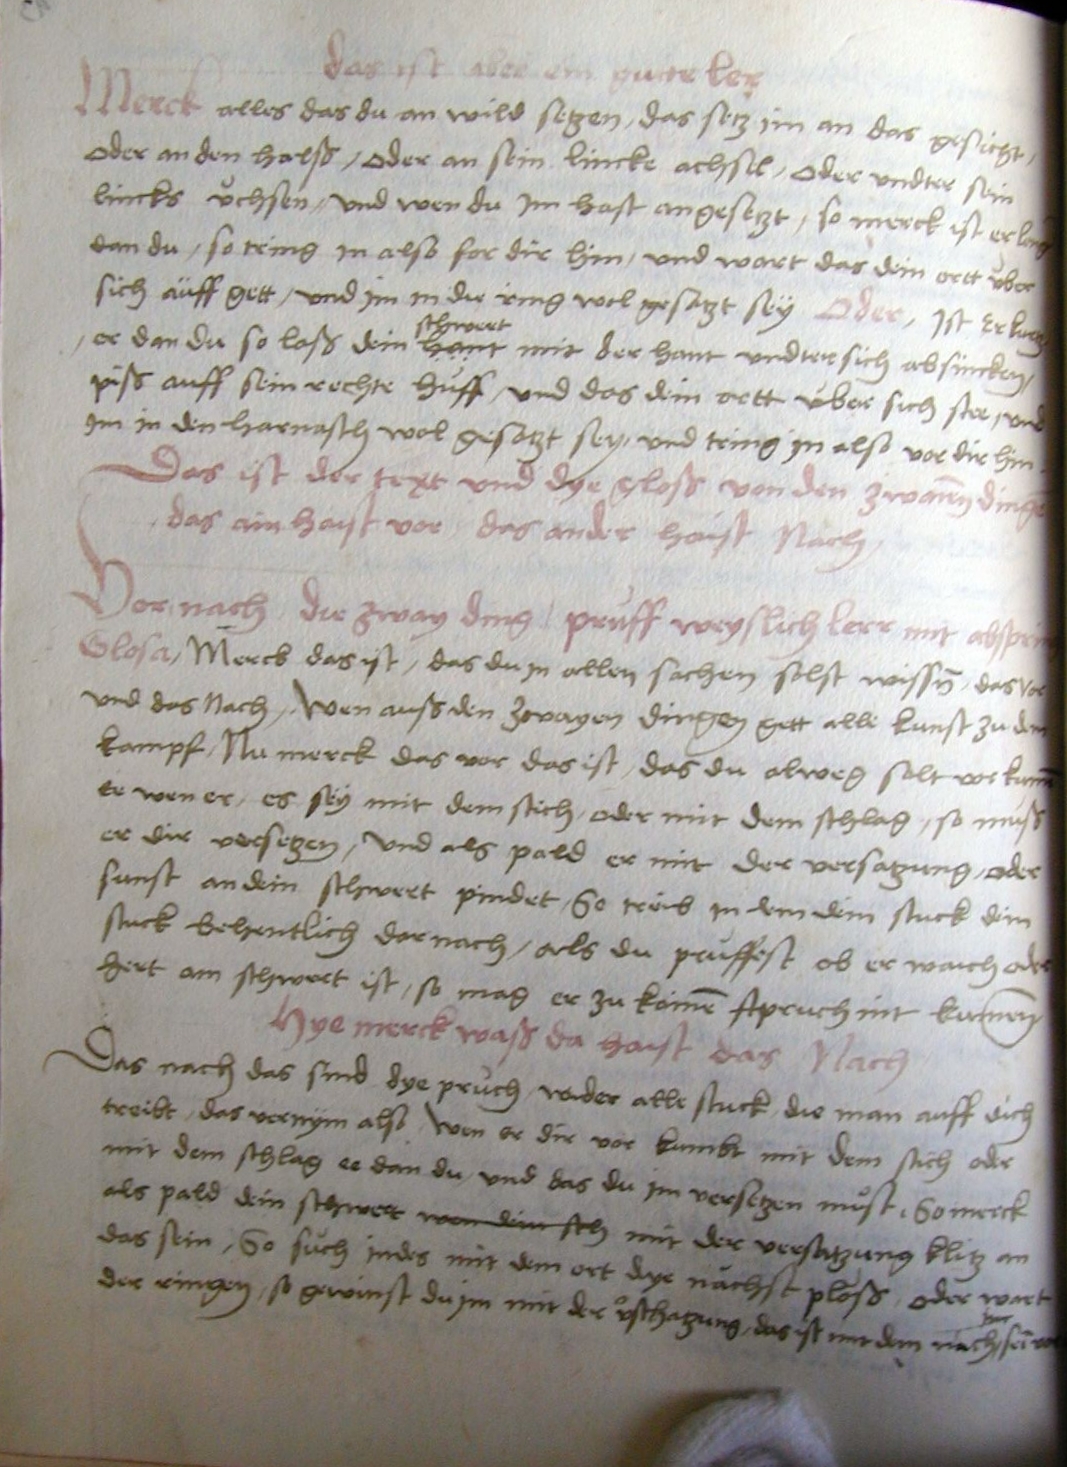 das ist aber ein gutte ler
Merck alles das du an wild setzen, das setz im an das gesicht,
oder an den halß, oder an sein lincke achsel, oder undter sein
lincks üchsen, und wen du im hast angesetzt, so merck ist er leng
dan du, so tring in also for dir hin, und wart das dein ortt über
sich auff gett, und im in die ring wol gesatzt sey Oder, Ist er kurtz
schwert
er dan du so laß dein hant mit der hant undter sich absincken,
piß auff sein rechte hüff, und das dein ortt über sich stee, und
im in den harnasch wol gesatzt sey, und tring in also vor dir hin
Das ist der text und dye gloß von den zwaien dingen
das ain haist vor das ander haist Nach
Vor nach die zway ding prüff weyslich lere mit abspring
Glosa, Merck das ist, das du in allen sachen solst wissn̄, das vor
und das Nach, Wen auß den zwayen dingen gett alle kunst zu dem
kampf, Nu merck das vor das ist, das du alweg solt vor kumē
ee wen er, es sey mit dem stich, oder mit dem schlag, so muß
er dir versetzen, Und als pald er mit der versatzung, oder
sunst an dein schwert pindet, So treib in dem dein stuck dein
stuck behentlich dornach, als du prüffest ob er waich oder
hert am schwert ist, so mag er zu kainē pruch nit kumen
Hye merck waß da haist das Nach
Das nach das sind dye prüch, wider alle stuck, die man auff dich
treibt, das vernym also, Wen er dir vor kumbt mit dem stich oder
mit dem schlag ee dan du, und das du im versetzen müst, So merck
als pald dein schwert mit der versatzung klitz an
das sein, So süch indes mit dem ort dye nächst plöß, oder wart
der ringen, so gewinst du im mit der das ist mit dem nach